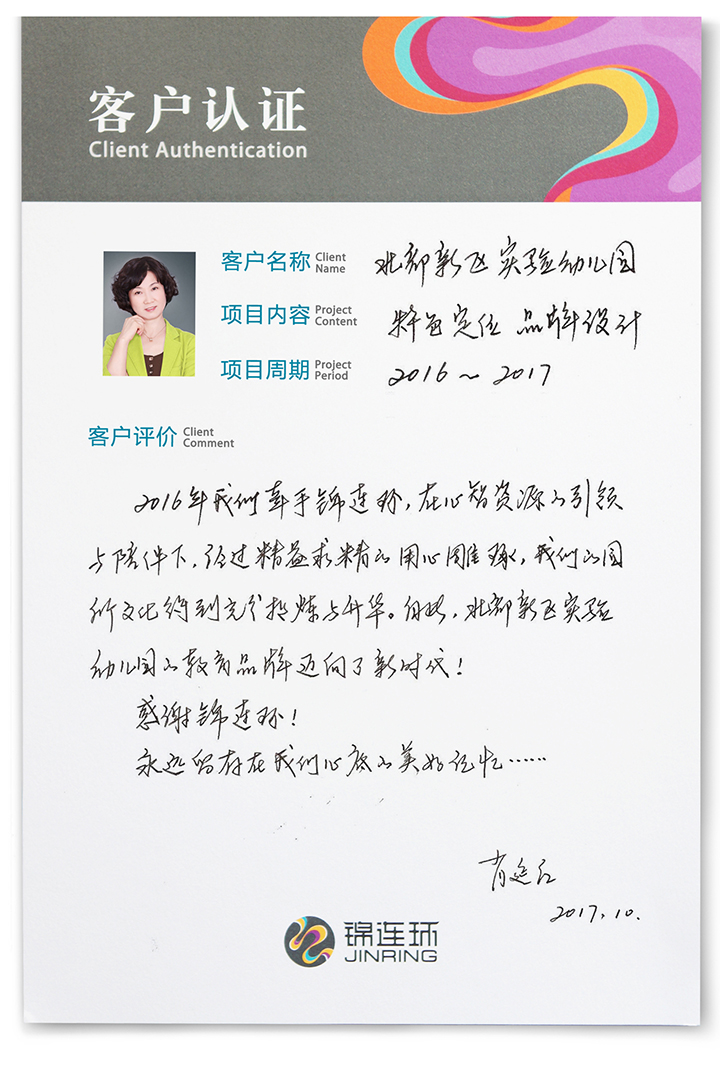 客户认证
Client Authentication
客户名称 Client Name 北部新区实验幼儿园
项目内容 Project Content 特色定位 品牌设计
项目周期 Project Period 2016~2017
客户评价 Client Comment
2016年我们牵手锦连环,在心智资源的引领
与陪伴下,经过精益求精的用心雕琢,我们的园
所文化得到充分提炼与升华。自此,北部新区实验
幼儿园的教育品牌迈向了新时代!
感谢锦连环!
永远留存在我们心底的美好记忆……
肖延红
2017.10.
锦连环
JINRING